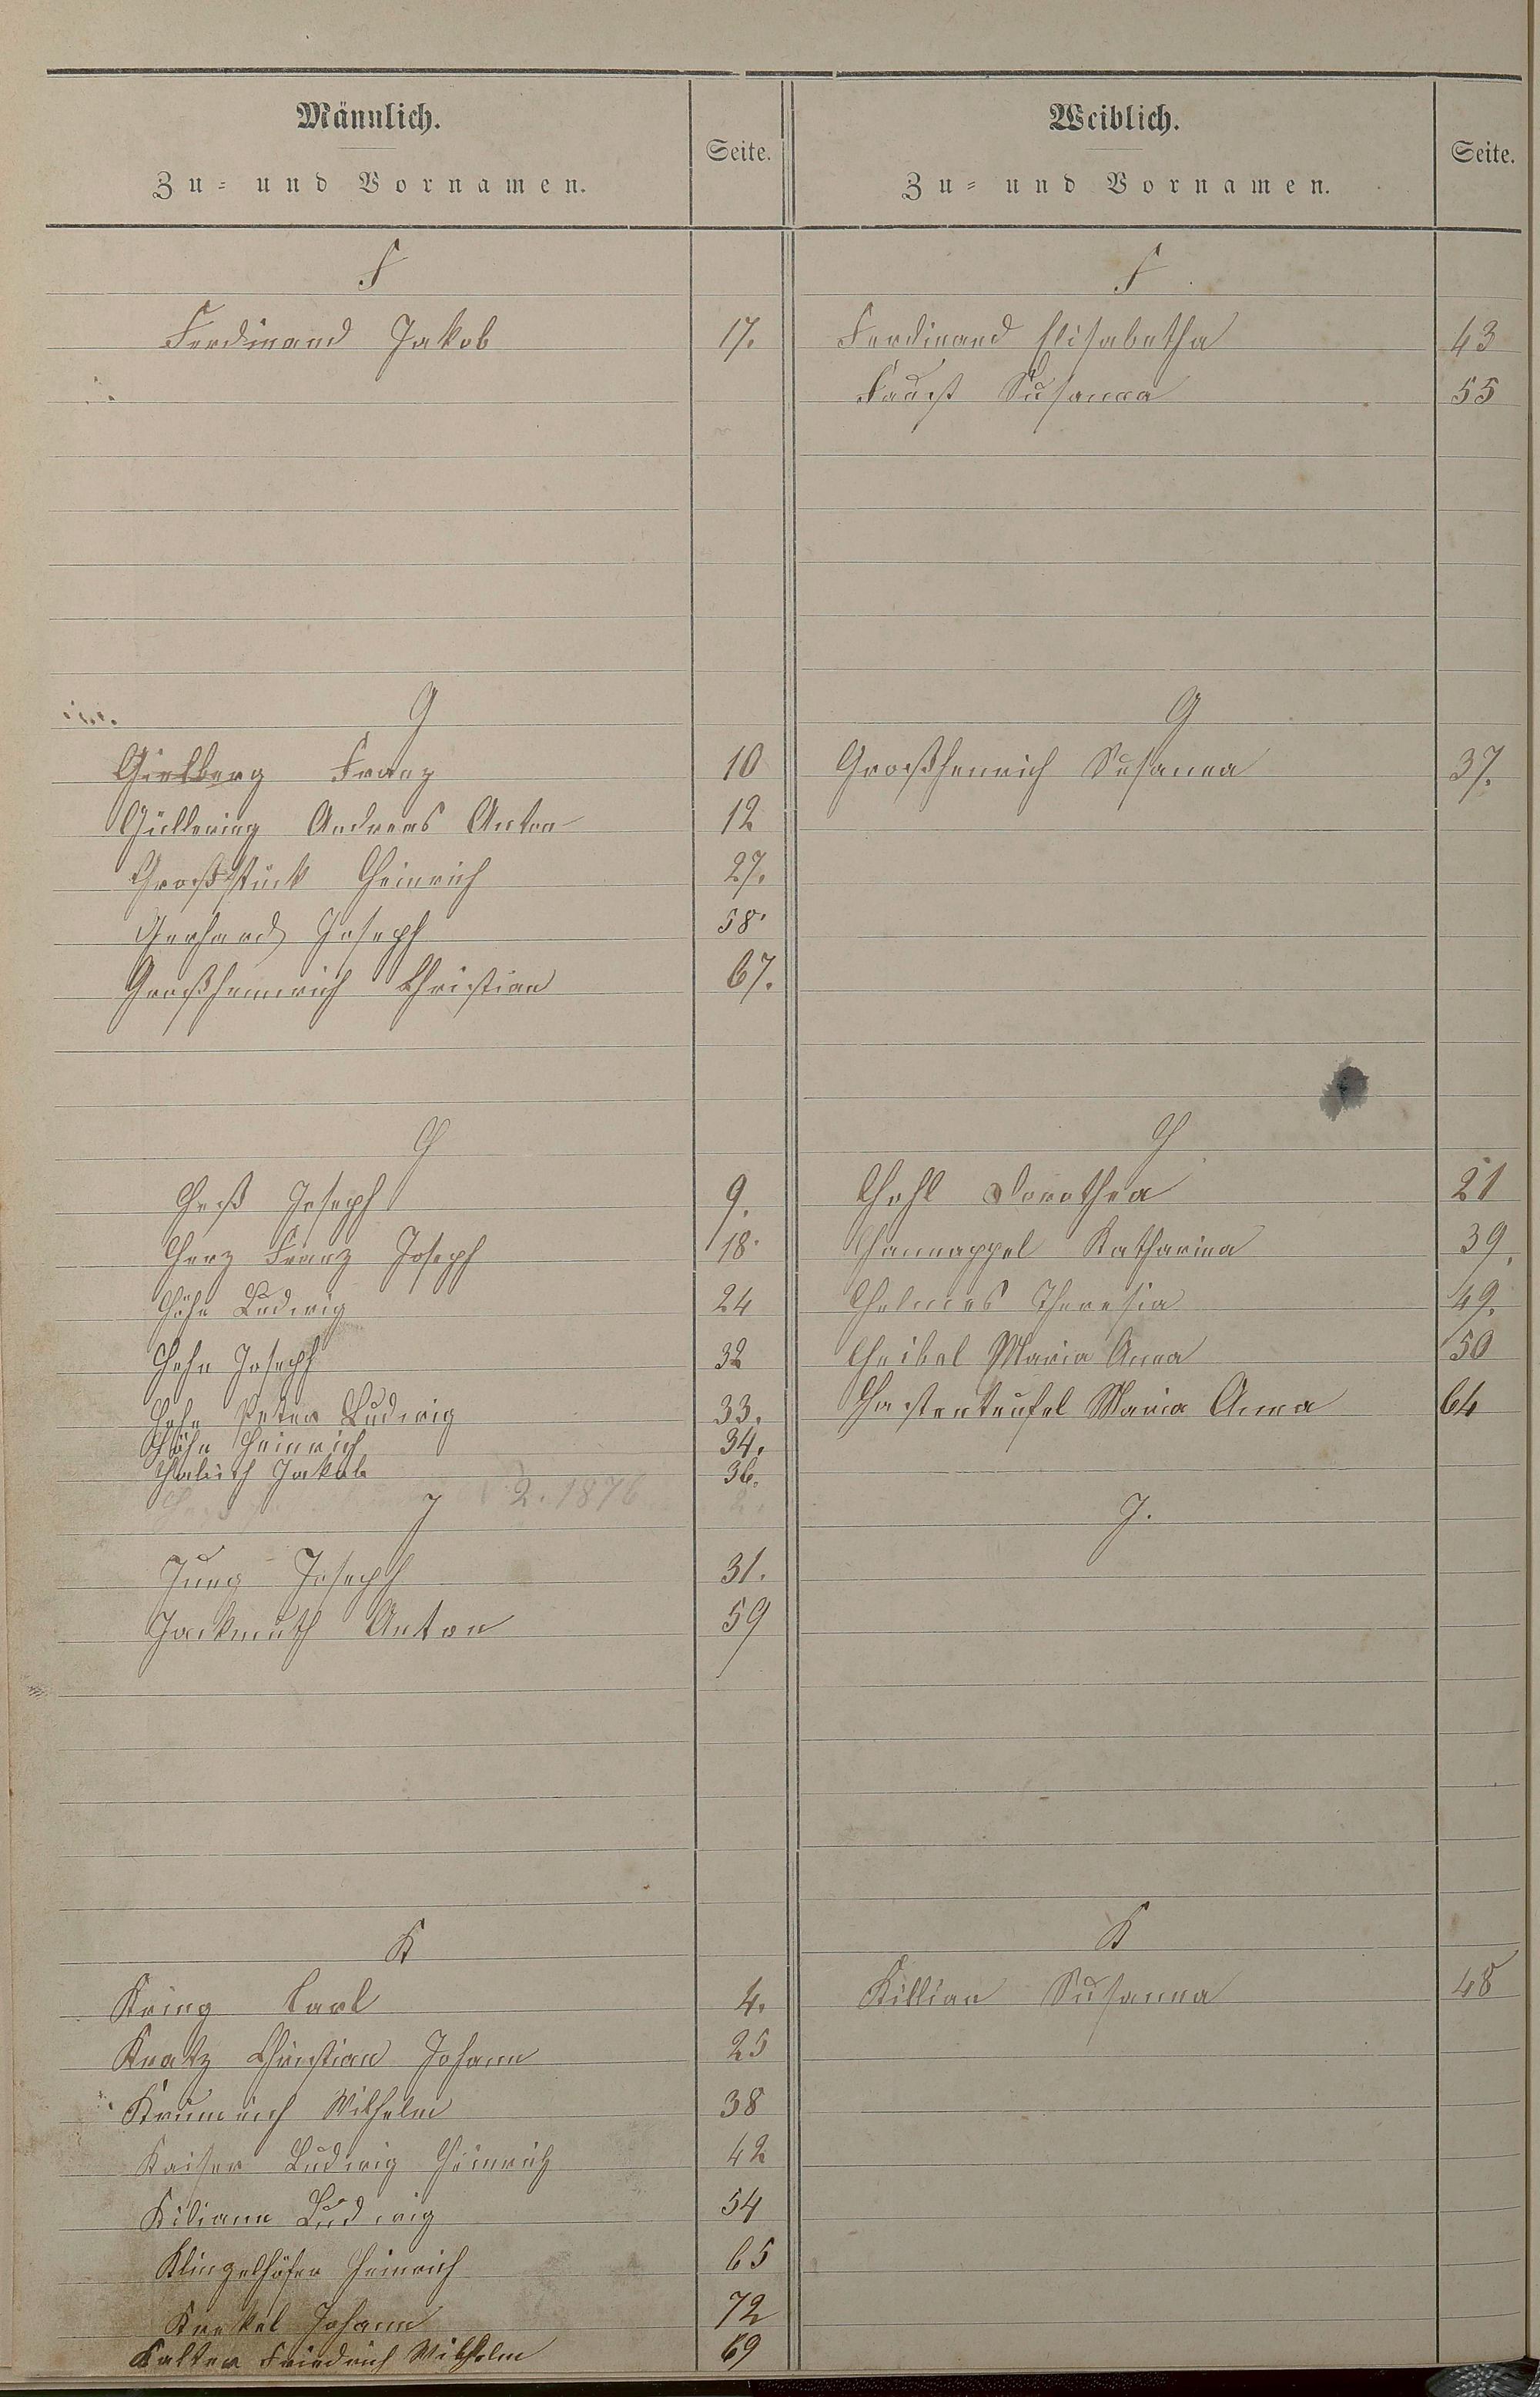 Männlich.
Zu- und Vornamen.
Seite.
Weiblich.
Zu- und Vornamen.
Seite.
F
F.
Ferdinand Jakob 17.
Ferdinand Elisabetha 43
Faust Susanna 55
G
G
Gielberg Franz 10
Großhenrich Susanna 37.
Güllering Andreas Anton 12
Großstück Heinrich 27.
Gerhard Joseph 58.
Großhennrich Christian 67.
H
H
Heß Joseph 9.
Hohl Dorothea 21
Herz Franz Joseph 18.
Hannappel Katharina 39.
Höhn Ludwig 24
Helmes Theresia 49.
Hehn Joseph 32
Heibel Maria Anna 50
Hehn Peter Ludwig 33.
Hastenteufel Maria Anna 64
Höhn Heinrich 34.
Jakob 36.
2. 1876
J
J.
Jung Joseph 31.
Jackmuth Anton 59
K
K
Kring Carl 4.
Killian Susanna 48
Kratz Christian Johann 25
Krumeich Wilhelm 38
Kaiser Ludwig Heinrich 42
Kiliann Ludwig 54
Klingelhöfer Heinrich 65
Krekel Johann 72
Kalter Friedrich Wilhelm 69